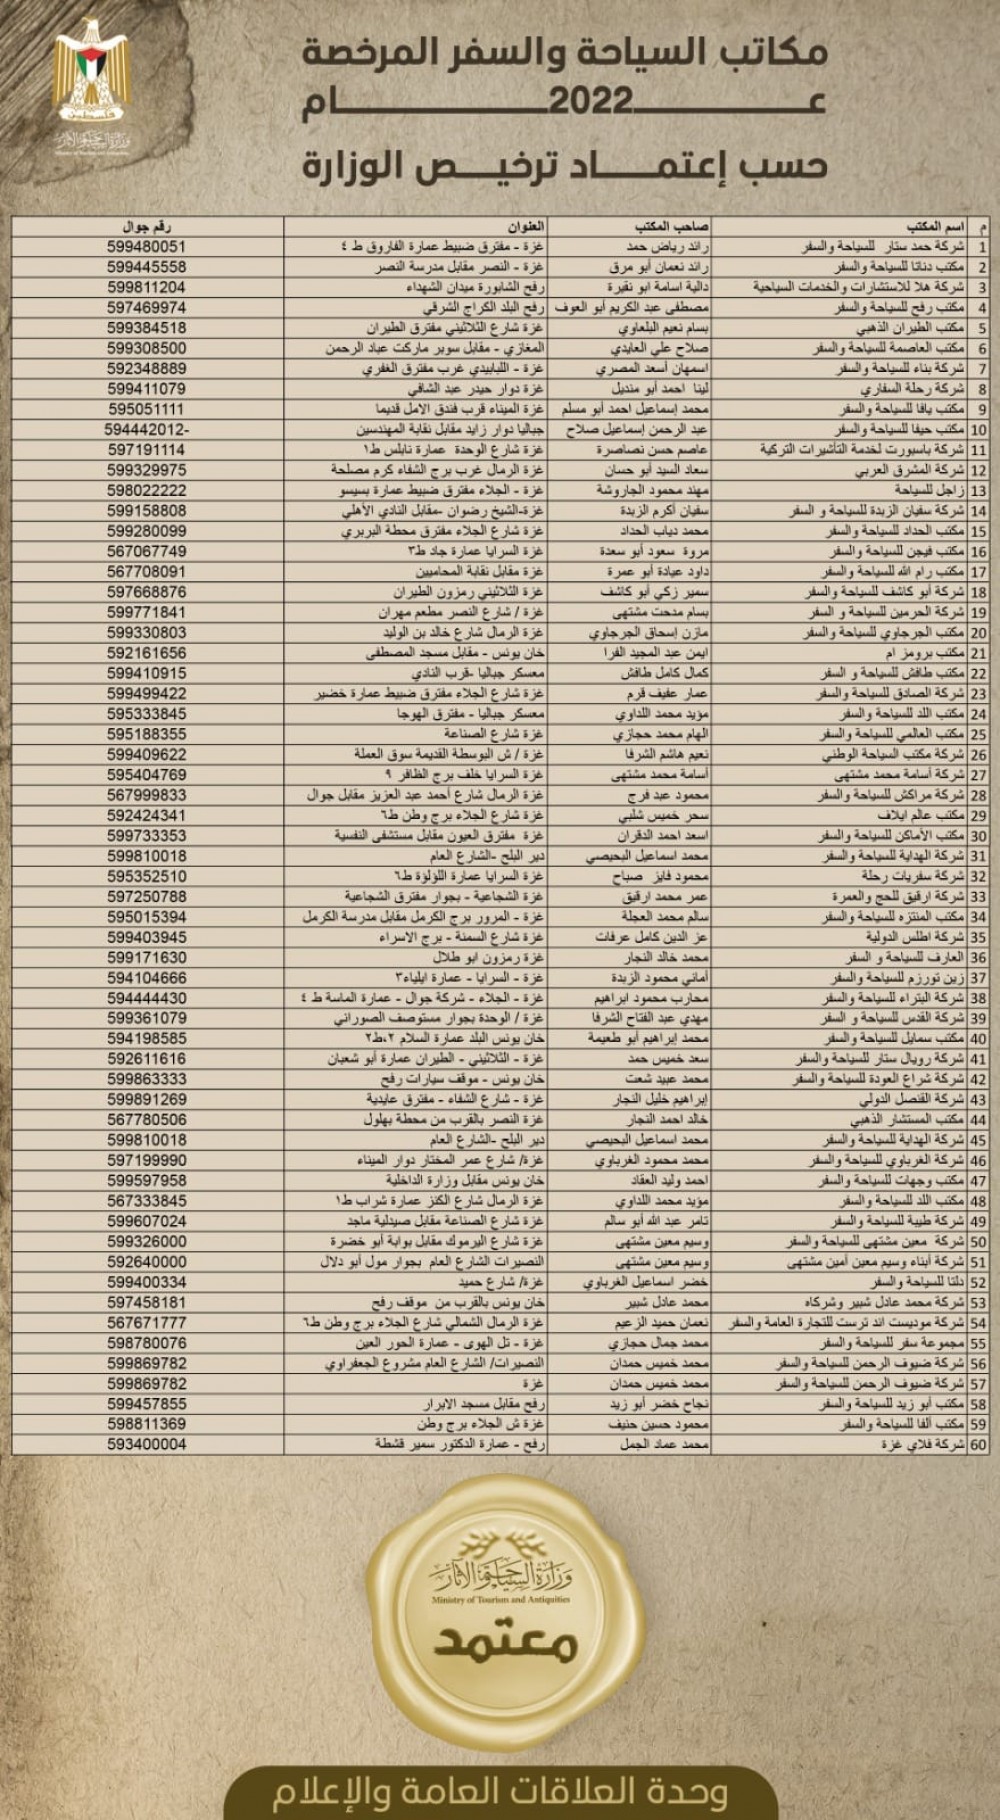 مكاتب السياحة والسفر المرخصة
عـــــــــ2022ـــــــــام
حسب إعتمـــــاد ترخيـــص الوزارة
فلسطين
وزارة السياحة والآثار
Ministry of Tourism and Antiquities
م اسم المكتب صاحب المكتب العنوان رقم جوال
1 شركة حمد ستار للسياحة والسفر رائد رياض حمد غزة - مفترق ضبيط عمارة الفاروق ط ٤ 599480051
2 مكتب دناتا للسياحة والسفر رائد نعمان أبو مرق غزة - النصر مقابل مدرسة النصر 599445558
3 شركة هلا للاستشارات والخدمات السياحية دالية اسامة ابو نقيرة رفح الشابورة ميدان الشهداء 599811204
4 مكتب رفح للسياحة والسفر مصطفى عبد الكريم أبو العوف رفح البلد الكراج الشرقي 597469974
5 مكتب الطيران الذهبي بسام نعيم البلعاوي غزة شارع الثلاثيني مفترق الطيران 599384518
6 مكتب العاصمة للسياحة والسفر صلاح علي العايدي المغازي - مقابل سوبر ماركت عباد الرحمن 599308500
7 شركة بناء للسياحة والسفر اسمهان أسعد المصري غزة - اللبابيدي غرب مفترق الغفري 592348889
8 شركة رحلة السفاري لينا احمد أبو منديل غزة دوار حيدر عبد الشافي 599411079
9 مكتب يافا للسياحة والسفر محمد إسماعيل احمد أبو مسلم غزة الميناء قرب فندق الامل قديما 595051111
10 مكتب حيفا للسياحة والسفر عبد الرحمن إسماعيل صلاح جباليا دوار زايد مقابل نقابة المهندسين 594442012-
11 شركة باسبورت لخدمة التأشيرات التركية عاصم حسن نصاصرة غزة شارع الوحدة عمارة نابلس ط١ 597191114
12 شركة المشرق العربي سعاد السيد أبو حسان غزة الرمال غرب برج الشفاء كرم مصلحة 599329975
13 زاجل للسياحة مهند محمود الجاروشة غزة - الجلاء مفترق ضبيط عمارة بسيسو 598022222
14 شركة سفيان الزبدة للسياحة و السفر سفيان أكرم الزبدة غزة-الشيخ رضوان -مقابل النادي الأهلي 599158808
15 مكتب الحداد للسياحة والسفر محمد دياب الحداد غزة شارع الجلاء مفترق محطة البربري 599280099
16 مكتب فيجن للسياحة والسفر مروة سعود أبو سعدة غزة السرايا عمارة جاد ط٣ 567067749
17 مكتب رام الله للسياحة والسفر داود عيادة أبو عمرة غزة مقابل نقابة المحاميين 567708091
18 شركة أبو كاشف للسياحة والسفر سمير زكي أبو كاشف غزة الثلاثيني رمزون الطيران 597668876
19 شركة الحرمين للسياحة و السفر بسام مدحت مشتهى غزة / شارع النصر مطعم مهران 599771841
20 مكتب الجرجاوي للسياحة والسفر مازن إسحاق الجرجاوي غزة الرمال شارع خالد بن الوليد 599330803
21 مكتب برومز ام ايمن عبد المجيد الفرا خان يونس - مقابل مسجد المصطفى 592161656
22 مكتب طافش للسياحة و السفر كمال كامل طافش معسكر جباليا -قرب النادي 599410915
23 شركة الصادق للسياحة والسفر عمار عفيف قرم غزة شارع الجلاء مفترق ضبيط عمارة خضير 599499422
24 مكتب اللد للسياحة والسفر مؤيد محمد اللداوي معسكر جباليا - مفترق الهوجا 595333845
25 مكتب العالمي للسياحة والسفر الهام محمد حجازي غزة شارع الصناعة 595188355
26 شركة مكتب السياحة الوطني نعيم هاشم الشرفا غزة / ش البوسطة القديمة سوق العملة 599409622
27 شركة أسامة محمد مشتهى أسامة محمد مشتهى غزة السرايا خلف برج الظافر ٩ 595404769
28 شركة مراكش للسياحة والسفر محمود عبد فرج غزة الرمال شارع أحمد عبد العزيز مقابل جوال 567999833
29 مكتب عالم ايلاف سحر خميس شلبي غزة شارع الجلاء برج وطن ط٦ 592424341
30 مكتب الأماكن للسياحة والسفر اسعد احمد الدقران غزة مفترق العيون مقابل مستشفى النفسية 599733353
31 شركة الهداية للسياحة والسفر محمد اسماعيل البحيصي دير البلح -الشارع العام 599810018
32 شركة سفريات رحلة محمود فايز صباح غزة السرايا عمارة اللؤلؤة ط٦ 595352510
33 شركة ارقيق للحج والعمرة عمر محمد ارقيق غزة الشجاعية - بجوار مفترق الشجاعية 597250788
34 مكتب المنتزه للسياحة والسفر سالم محمد العجلة غزة - المرور برج الكرمل مقابل مدرسة الكرمل 595015394
35 شركة اطلس الدولية عز الدين كامل عرفات غزة شارع السمنة - برج الاسراء 599403945
36 العارف للسياحة و السفر محمد خالد النجار غزة رمزون ابو طلال 599171630
37 زين تورزم للسياحة والسفر أماني محمود الزبدة غزة - السرايا - عمارة ايلياء٣ 594104666
38 شركة البتراء للسياحة والسفر محارب محمود ابراهيم غزة - الجلاء - شركة جوال - عمارة الماسة ط ٤ 594444430
39 شركة القدس للسياحة و السفر مهدي عبد الفتاح الشرفا غزة / الوحدة بجوار مستوصف الصوراني 599361079
40 مكتب سمايل للسياحة والسفر محمد إبراهيم أبو طعيمة خان يونس البلد عمارة السلام ٢،ط٢ 594198585
41 شركة رويال ستار للسياحة والسفر سعد خميس حمد غزة - الثلاثيني - الطيران عمارة أبو شعبان 592611616
42 شركة شراع العودة للسياحة والسفر محمد عبيد شعت خان يونس - موقف سيارات رفح 599863333
43 شركة القنصل الدولي إبراهيم خليل النجار غزة - شارع الشفاء - مفترق عايدية 599891269
44 مكتب المستشار الذهبي خالد احمد النجار غزة النصر بالقرب من محطة بهلول 567780506
45 شركة الهداية للسياحة والسفر محمد اسماعيل البحيصي دير البلح -الشارع العام 599810018
46 شركة الغرباوي للسياحة والسفر محمد محمود الغرباوي غزة/ شارع عمر المختار دوار الميناء 597199990
47 مكتب وجهات للسياحة والسفر احمد وليد العقاد خان يونس مقابل وزارة الداخلية 599597958
48 مكتب اللد للسياحة والسفر مؤيد محمد اللداوي غزة الرمال شارع الكنز عمارة شراب ط١ 567333845
49 شركة طيبة للسياحة والسفر تامر عبد الله أبو سالم غزة شارع الصناعة مقابل صيدلية ماجد 599607024
50 شركة معين مشتهى للسياحة والسفر وسيم معين مشتهى غزة شارع اليرموك مقابل بوابة أبو خضرة 599326000
51 شركة أبناء وسيم معين أمين مشتهى وسيم معين مشتهى النصيرات الشارع العام بجوار مول أبو دلال 592640000
52 دلتا للسياحة والسفر خضر اسماعيل الغرباوي غزة/ شارع حميد 599400334
53 شركة محمد عادل شبير وشركاه محمد عادل شبير خان يونس بالقرب من موقف رفح 597458181
54 شركة موديست اند ترست للتجارة العامة والسفر نعمان حميد الزعيم غزة الرمال الشمالي شارع الجلاء برج وطن ط٦ 567671777
55 مجموعة سفر للسياحة والسفر محمد جمال حجازي غزة - تل الهوى - عمارة الحور العين 598780076
56 شركة ضيوف الرحمن للسياحة والسفر محمد خميس حمدان النصيرات/ الشارع العام مشروع الجعفراوي 599869782
57 شركة ضيوف الرحمن للسياحة والسفر محمد خميس حمدان غزة 599869782
58 مكتب أبو زيد للسياحة والسفر نجاح خضر أبو زيد رفح مقابل مسجد الابرار 599457855
59 مكتب ألفا للسياحة والسفر محمود حسين حنيف غزة ش الجلاء برج وطن 598811369
60 شركة فلاي غزة محمد عماد الجمل رفح - عمارة الدكتور سمير قشطة 593400004
وزارة السياحة والآثار
Ministry of Tourism and Antiquities
معتمد
وحدة العلاقات العامة والإعلام